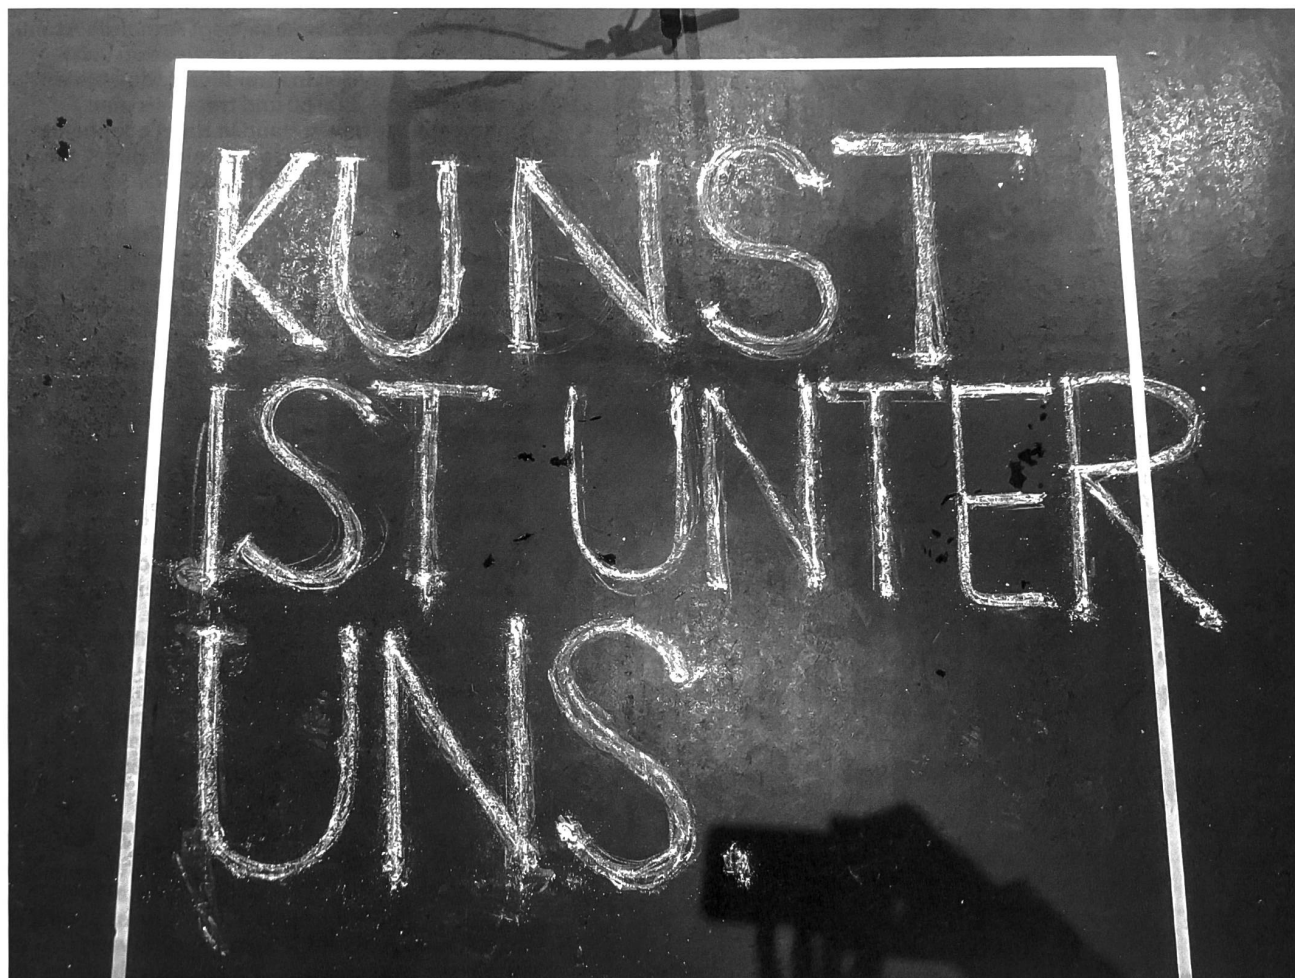 KUNST
IST UNTER
UNS.